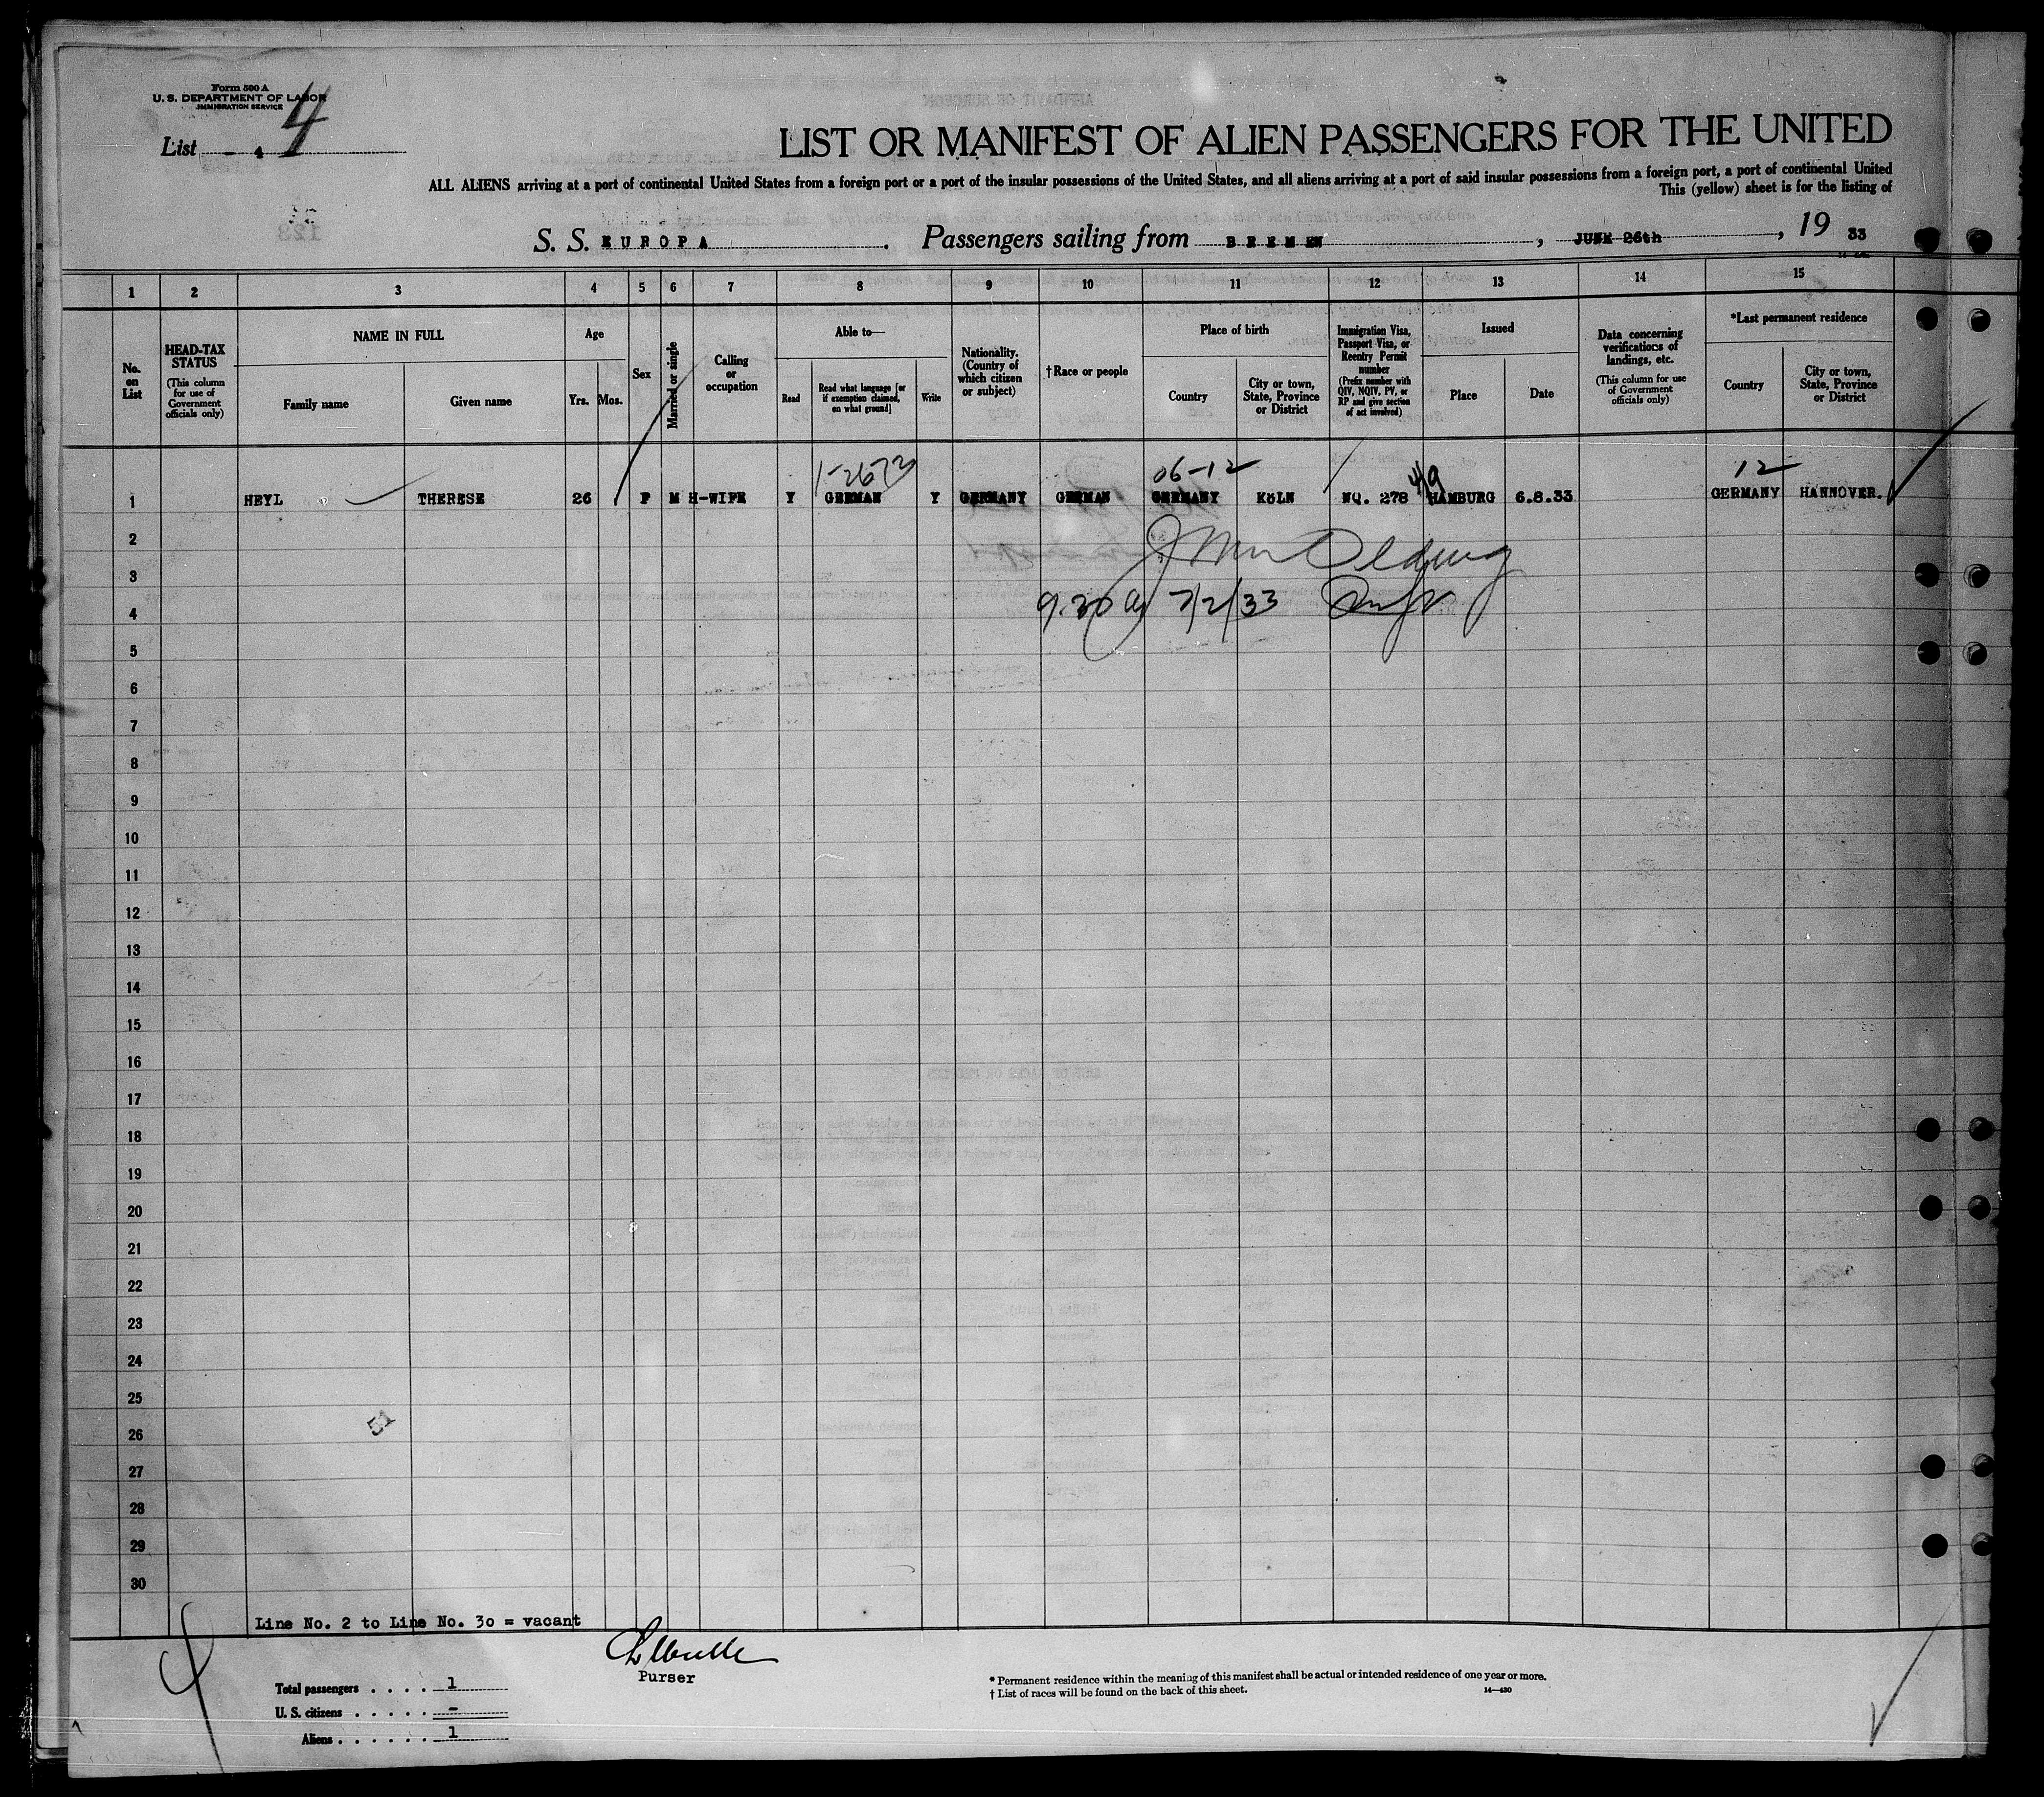 Form 500 A
U. S. DEPARTMENT OF LABOR
IMMIGRATION SERVICE
List - 4 4
LIST OR MANIFEST OF ALIEN PASSENGERS FOR THE UNITED
ALL ALIENS arriving at a port of continental United States from a foreign port or a port of the insular possessions of the United States, and all aliens arriving at a port of said insular possessions from a foreign port, a port of continental United
This (yellow) sheet is for the listing of
S. S. EUROPA. Passengers sailing from BREMEN, JUNE 26th, 19 33
1 2 3 4 5 6 7 8 9 10 11 12 13 14 15
No. on List
HEAD-TAX STATUS
(This column for use of Government officials only)
NAME IN FULL
Family name
Given name
Age
Yrs. Mos.
Sex
Married or single
Calling or occupation
Able to—
Read
Read what language [or if exemption claimed, on what ground]
Write
Nationality. (Country of which citizen or subject)
† Race or people
Place of birth
Country
City or town, State, Province or District
Immigration Visa, Passport Visa, or Reentry Permit number
(Prefix number with QIV, NQIV, PV, or RP and give section of act involved)
Issued
Place
Date
Data concerning verifications of landings, etc.
(This column for use of Government officials only)
*Last permanent residence
Country
City or town, State, Province or District
06-12
12
1 HEYL THERESE 26 F M H-WIFE Y GERMAN Y GERMANY GERMAN GERMANY KöLN NQ. 278 HAMBURG 6.8.33 GERMANY HANNOVER.
2
3
9.30 7/2/33
4
5
6
7
8
9
10
11
12
13
14
15
16
17
18
19
20
21
22
23
24
25
26
27
28
29
30
51
Line No. 2 to Line No. 30 = vacant
Purser
Total passengers . . . . 1
U. S. citizens . . . . . -
Aliens . . . . . . 1
4
* Permanent residence within the meaning of this manifest shall be actual or intended residence of one year or more.
† List of races will be found on the back of this sheet.
14—430